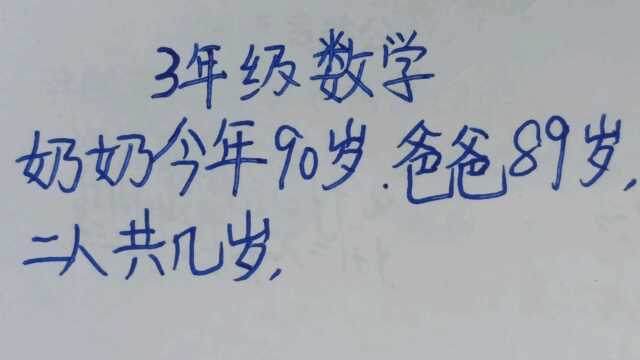 3年级数学
奶奶今年90岁.爸爸89岁,
二人共几岁,